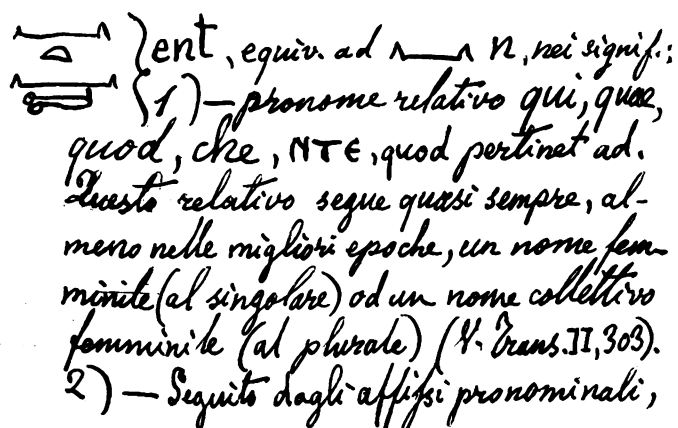 𓈖𓏏 } ent, equiv. ad 𓈖 n, nei signif.:
𓈖𓍿 { 1) — pronome relativo qui, quae,
quod, che, ⲚⲦⲈ, quod pertinet ad.
Questo relativo segue quasi sempre, al-
meno nelle migliori epoche, un nome fem-
minile (al singolare) od un nome collettivo
femminile (al plurale) (V. Trans. II, 303).
2) — Seguito dagli affissi pronominali,